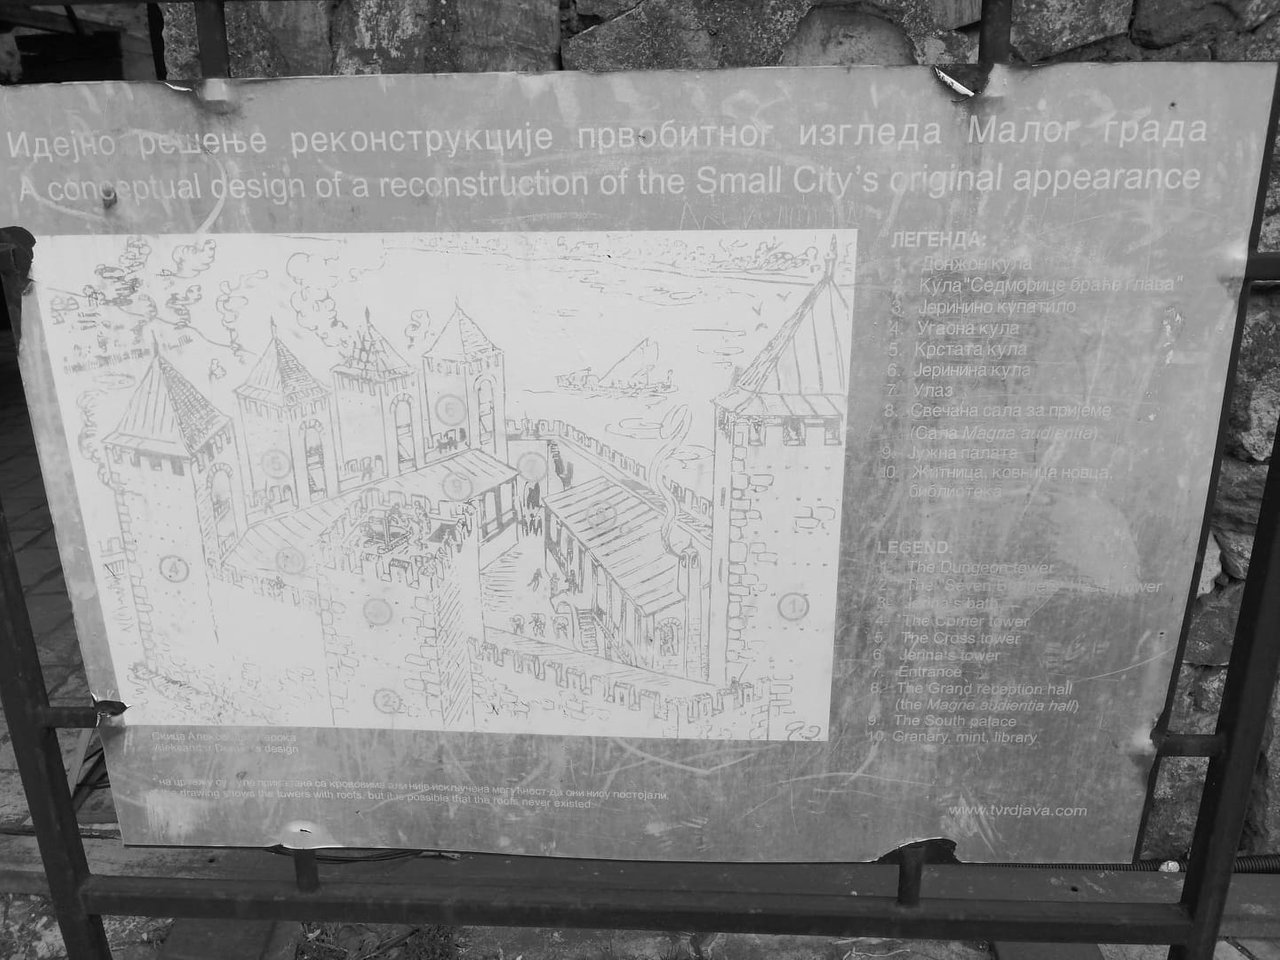 Идејно решење реконструкције првобитног изгледа Малог града
A conceptual design of a reconstruction of the Small City's original appearance
ЛЕГЕНДА:
1. Донжон кула
2. Кула "Седморице браће глава"
3. Јеринино купатило
4. Угаона кула
5. Крстата кула
6. Јеринина кула
7. Улаз
8. Свечана сала за пријеме
(Сала Magna audientia)
9. Јужна палата
10. Житница, ковница новца,
библиотека
LEGEND:
1. The Dungeon tower
2. The "Seven tower
3. Jerina's bath
4. The Corner tower
5. The Cross tower
6. Jerina's tower
7. Entrance
8. The Grand reception hall
(the Magna audientia hall)
9. The South palace
10. Granary, mint, library
4
1
2
Скица
design
*на цртежу су куле приказане са крововима али није искључена могућност да они нису постојали.
the drawing shows the towers with roofs, but it is possible that the roofs never existed
www.tvrdjava.com